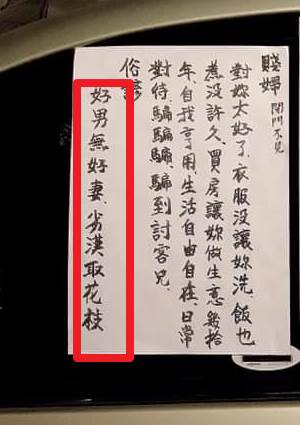 賤婦 閉門不見
對妳太好了、衣服没讓妳洗、飯也
煮没許久、買房讓妳做生意幾拾
年、自我享用、生活自由自在、日常
對待、騙騙騙、騙到討客兄、
俗諺
好男無好妻、劣漢取花枝